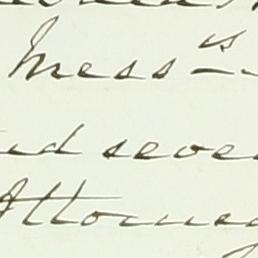 Mess^rs
nd seve
Attorney